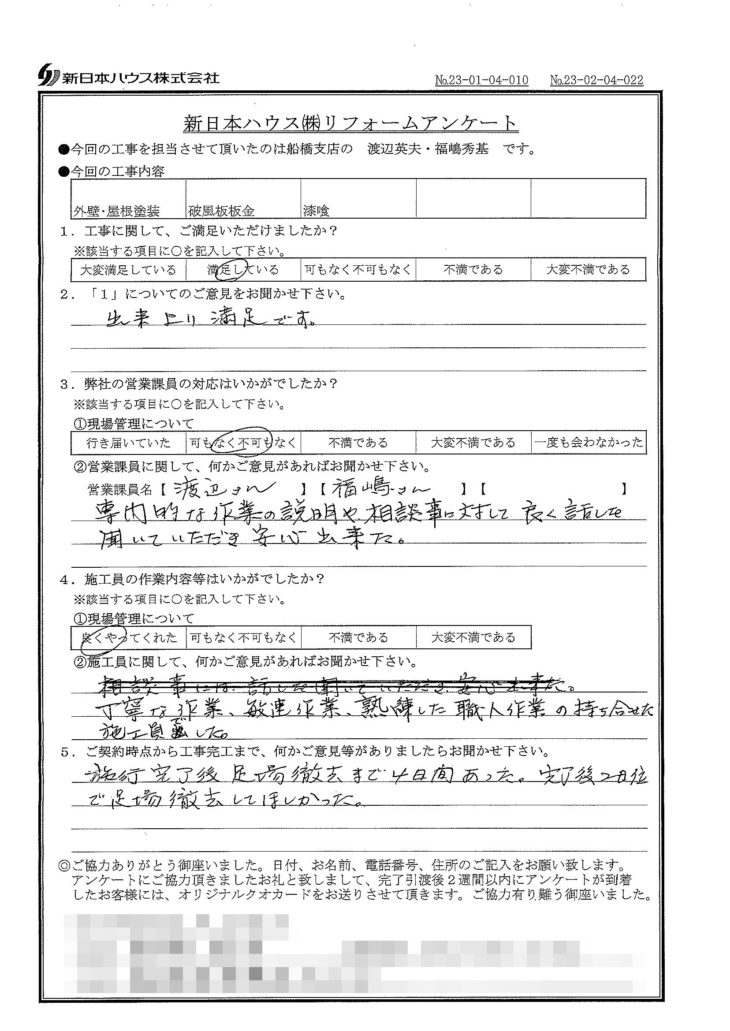 新日本ハウス株式会社
№23-01-04-010 №23-02-04-022
新日本ハウス㈱リフォームアンケート
●今回の工事を担当させて頂いたのは船橋支店の 渡辺英夫・福嶋秀基 です。
●今回の工事内容
外壁・屋根塗装 破風板板金 漆喰
1.工事に関して、ご満足いただけましたか?
※該当する項目に○を記入して下さい。
大変満足している 満足している 可もなく不可もなく 不満である 大変不満である
2.「1」についてのご意見をお聞かせ下さい。
出来上り満足です。
3.弊社の営業課員の対応はいかがでしたか?
※該当する項目に○を記入して下さい。
①現場管理について
行き届いていた 可もなく不可もなく 不満である 大変不満である 一度も会わなかった
②営業課員に関して、何かご意見があればお聞かせ下さい。
営業課員名【 渡辺さん 】【 福嶋さん 】【 】
専門的な作業の説明や、相談事に対して良く話しを
聞いていただき安心出来た。
4.施工員の作業内容等はいかがでしたか?
※該当する項目に○を記入して下さい。
①現場管理について
良くやってくれた 可もなく不可もなく 不満である 大変不満である
②施工員に関して、何かご意見があればお聞かせ下さい。
相談事には話しを聞いていただき安心出来た。
丁寧な作業、敏速作業、熟練した職人作業の持ち合せた
施工員でした。
5.ご契約時点から工事完工まで、何かご意見等がありましたらお聞かせ下さい。
施行完了後足場徹去まで4日間あった。完了後2日位
で足場徹去してほしかった。
◎ご協力ありがとう御座いました。日付、お名前、電話番号、住所のご記入をお願い致します。
アンケートにご協力頂きましたお礼と致しまして、完了引渡後2週間以内にアンケートが到着
したお客様には、オリジナルクオカードをお送りさせて頂きます。ご協力有り難う御座いました。